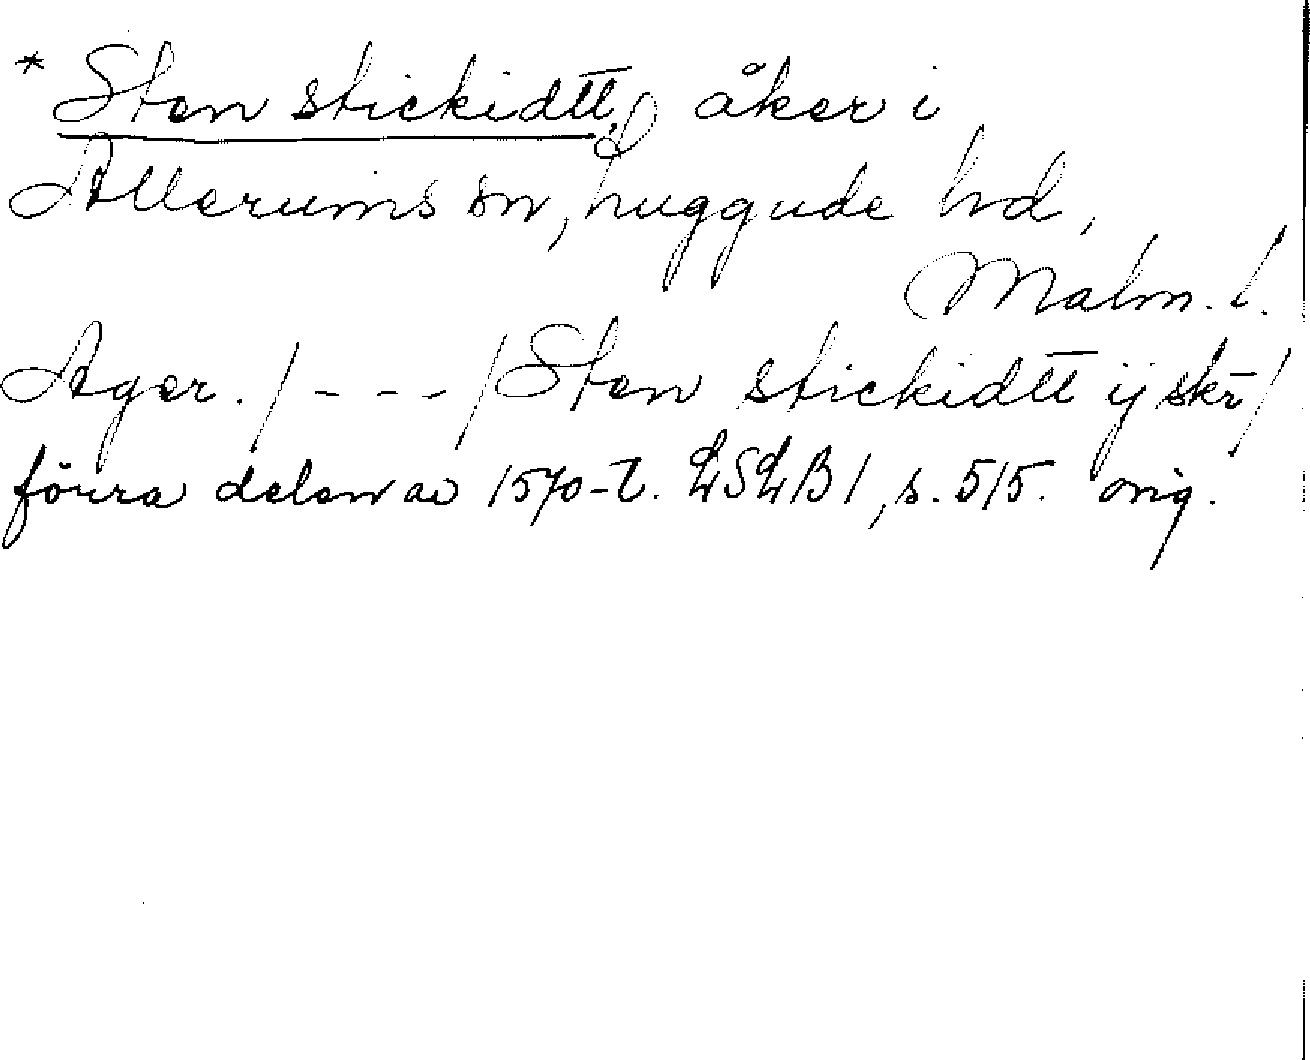 * Sten stickidtt, åker i
Allerums sn, Luggude hd,
Malm. l.
Ager. / - - - / Sten stickidtt ij skr /
förra delen av 1570-t. LSLB 1, s. 515. orig.